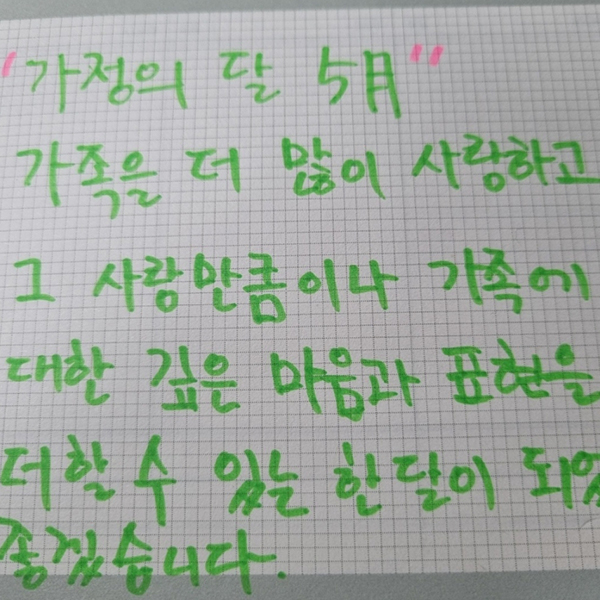 "가정의 달 5月"
가족을 더 많이 사랑하고
그 사랑만큼이나 가족에
대한 깊은 마음과 표현을
더할 수 있는 한달이 되었
좋겠습니다.